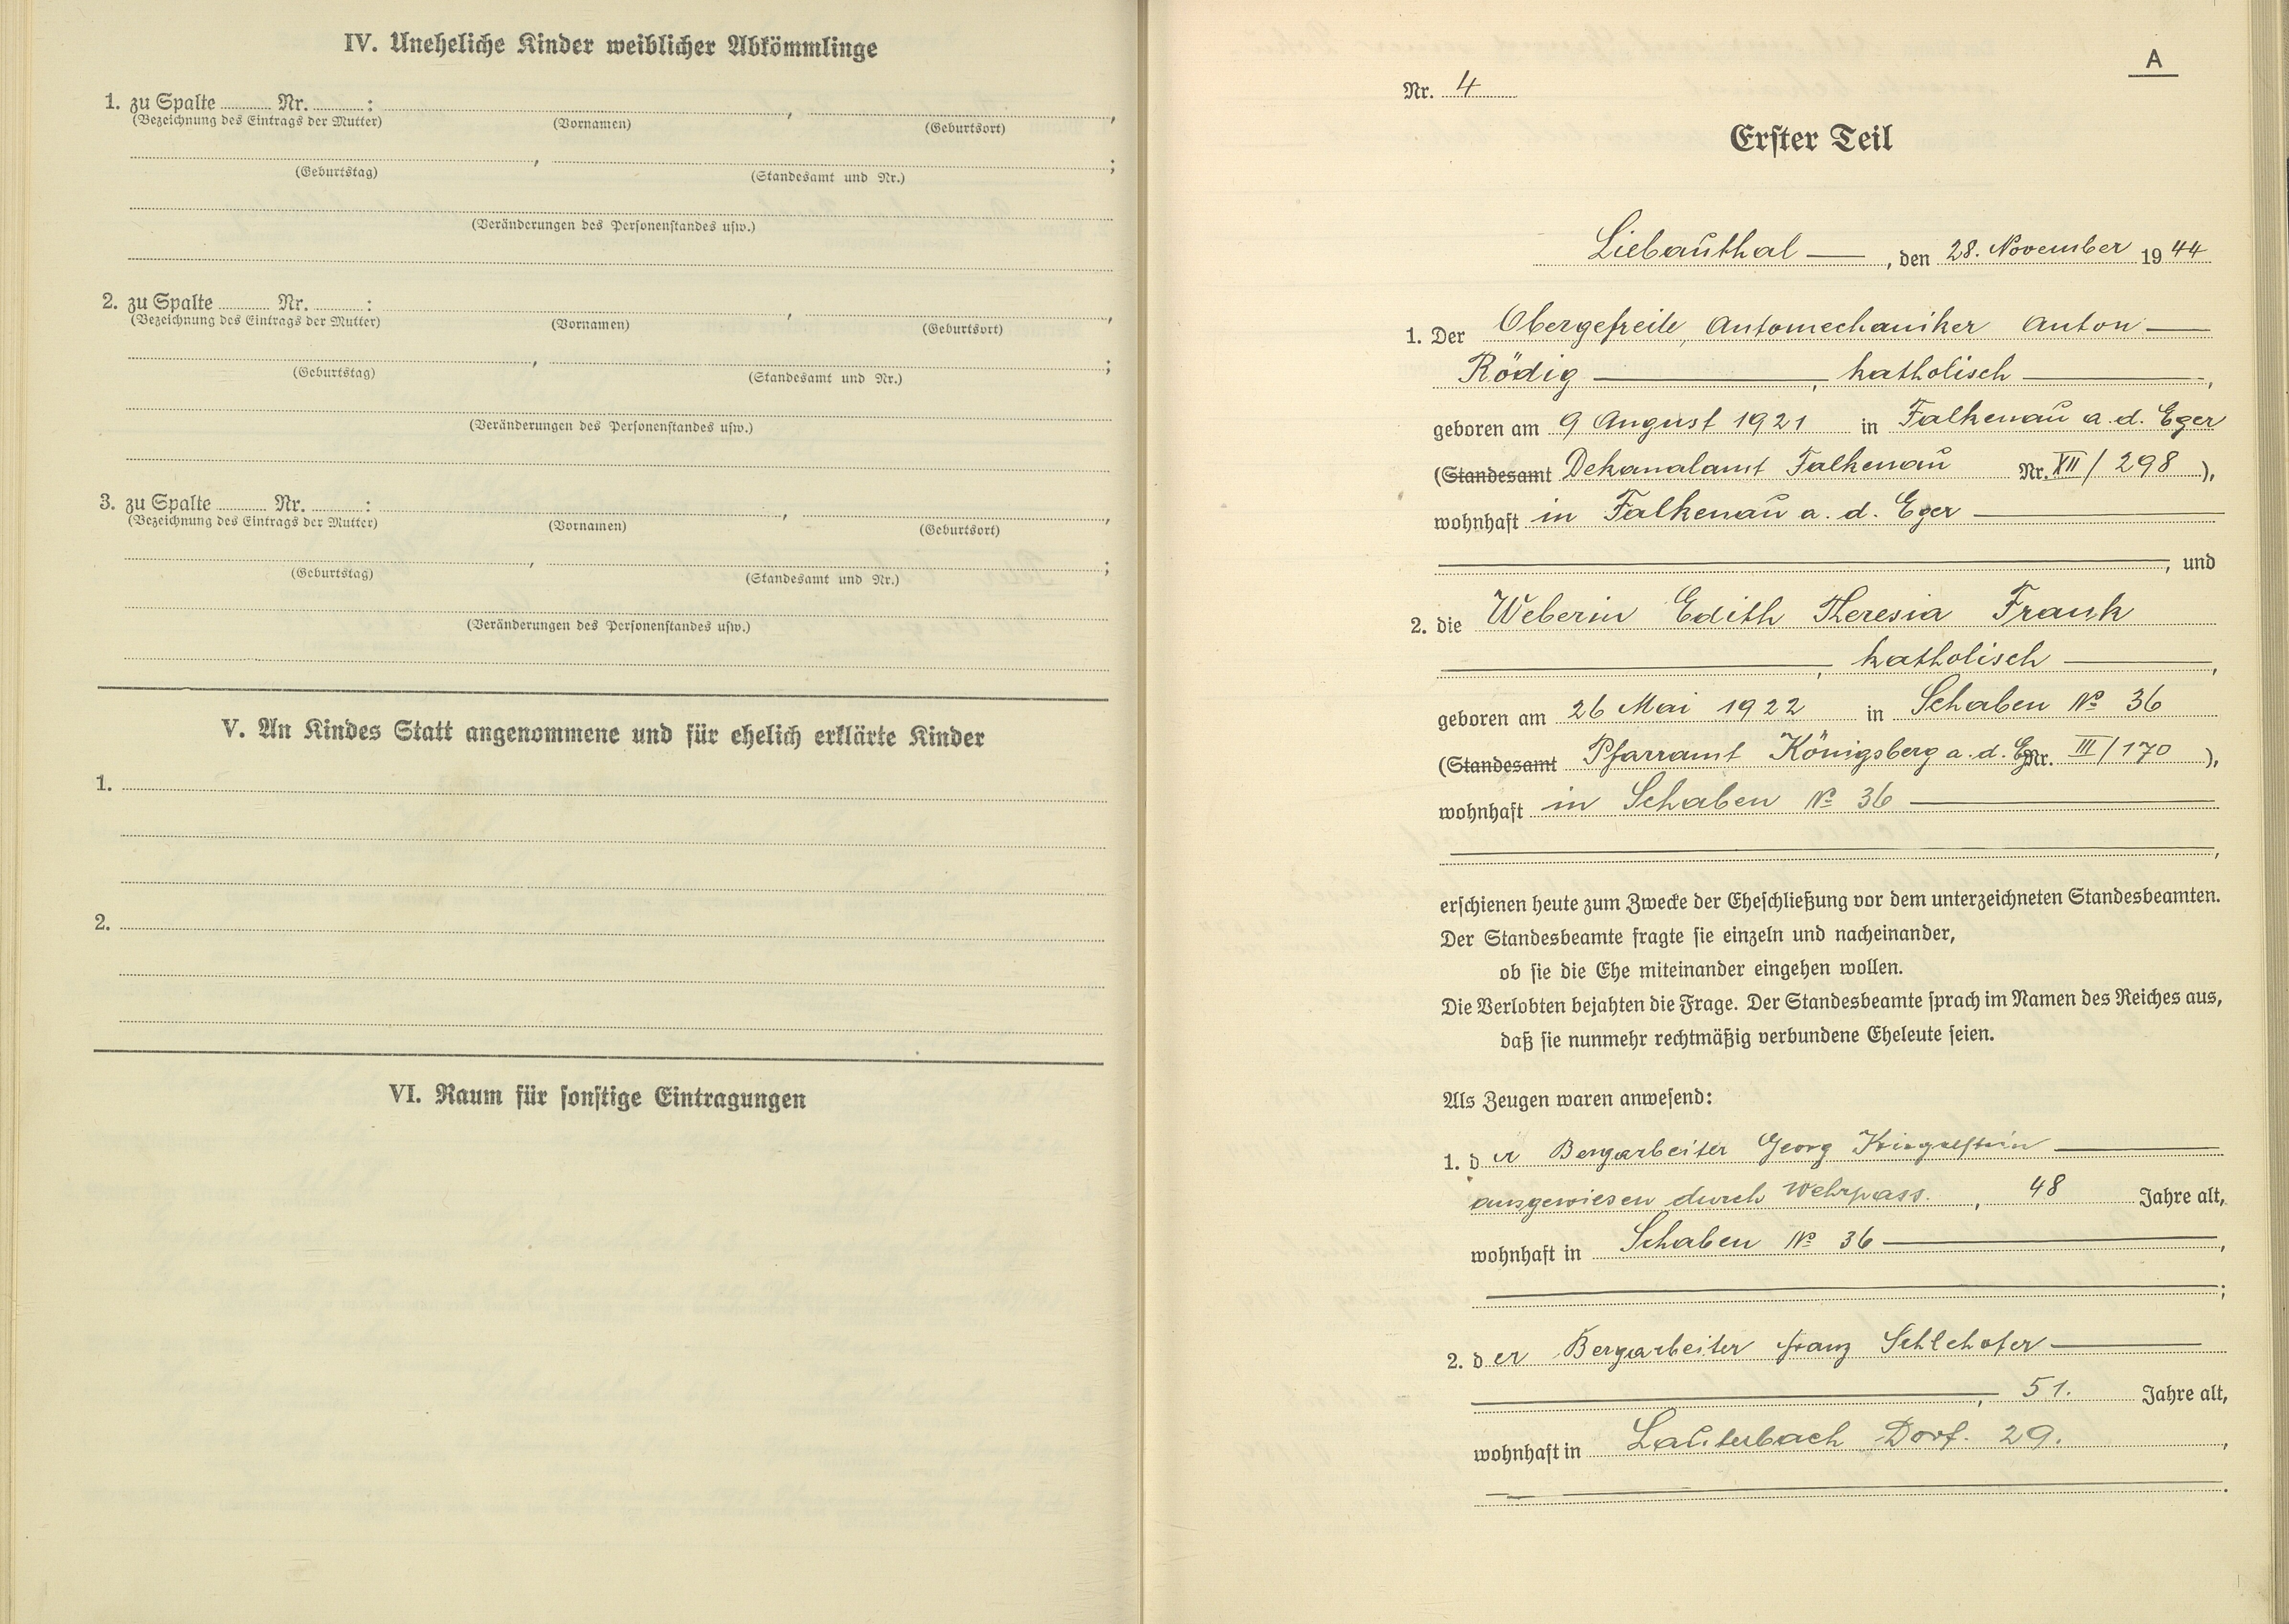 IV. Uneheliche Kinder weiblicher Abkömmlinge
1. zu Spalte ........ Nr. ........ : ........ , ........ ,
(Bezeichnung des Eintrags der Mutter) (Vornamen) (Geburtsort)
........ , ........ ;
(Geburtstag) (Standesamt und Nr.)
(Veränderungen des Personenstandes usw.)
2. zu Spalte ........ Nr. ........ : ........ , ........ ,
(Bezeichnung des Eintrags der Mutter) (Vornamen) (Geburtsort)
........ , ........ ;
(Geburtstag) (Standesamt und Nr.)
(Veränderungen des Personenstandes usw.)
3. zu Spalte ........ Nr. ........ : ........ , ........ ,
(Bezeichnung des Eintrags der Mutter) (Vornamen) (Geburtsort)
........ , ........ ;
(Geburtstag) (Standesamt und Nr.)
(Veränderungen des Personenstandes usw.)
V. An Kindes Statt angenommene und für ehelich erklärte Kinder
1.
2.
VI. Raum für sonstige Eintragungen
A
Nr. 4
Erster Teil
Liebauthal —, den 28. November 1944
1. Der Obergefreite, Automechaniker Anton —
Rödig —, katholisch —,
geboren am 9 August 1921 in Falkenau a. d. Eger
(Standesamt Dekanalamt Falkenau Nr. XII/298),
wohnhaft in Falkenau a. d. Eger —
—, und
2. die Weberin Edith Theresia Frank
—, katholisch —,
geboren am 26 Mai 1922 in Schaben № 36
(Standesamt Pfarramt Königsberg a. d. Eg. Nr. III/170),
wohnhaft in Schaben № 36 —
—,
erschienen heute zum Zwecke der Eheschließung vor dem unterzeichneten Standesbeamten.
Der Standesbeamte fragte sie einzeln und nacheinander,
ob sie die Ehe miteinander eingehen wollen.
Die Verlobten bejahten die Frage. Der Standesbeamte sprach im Namen des Reiches aus,
daß sie nunmehr rechtmäßig verbundene Eheleute seien.
Als Zeugen waren anwesend:
1. der Bergarbeiter Georg —
ausgewiesen durch Wehrpass., 48 Jahre alt,
wohnhaft in Schaben № 36 —,
—;
2. der Bergarbeiter Franz Schlehofer —
—, 51. Jahre alt,
wohnhaft in Lauterbach Dorf. 29. ,
—.